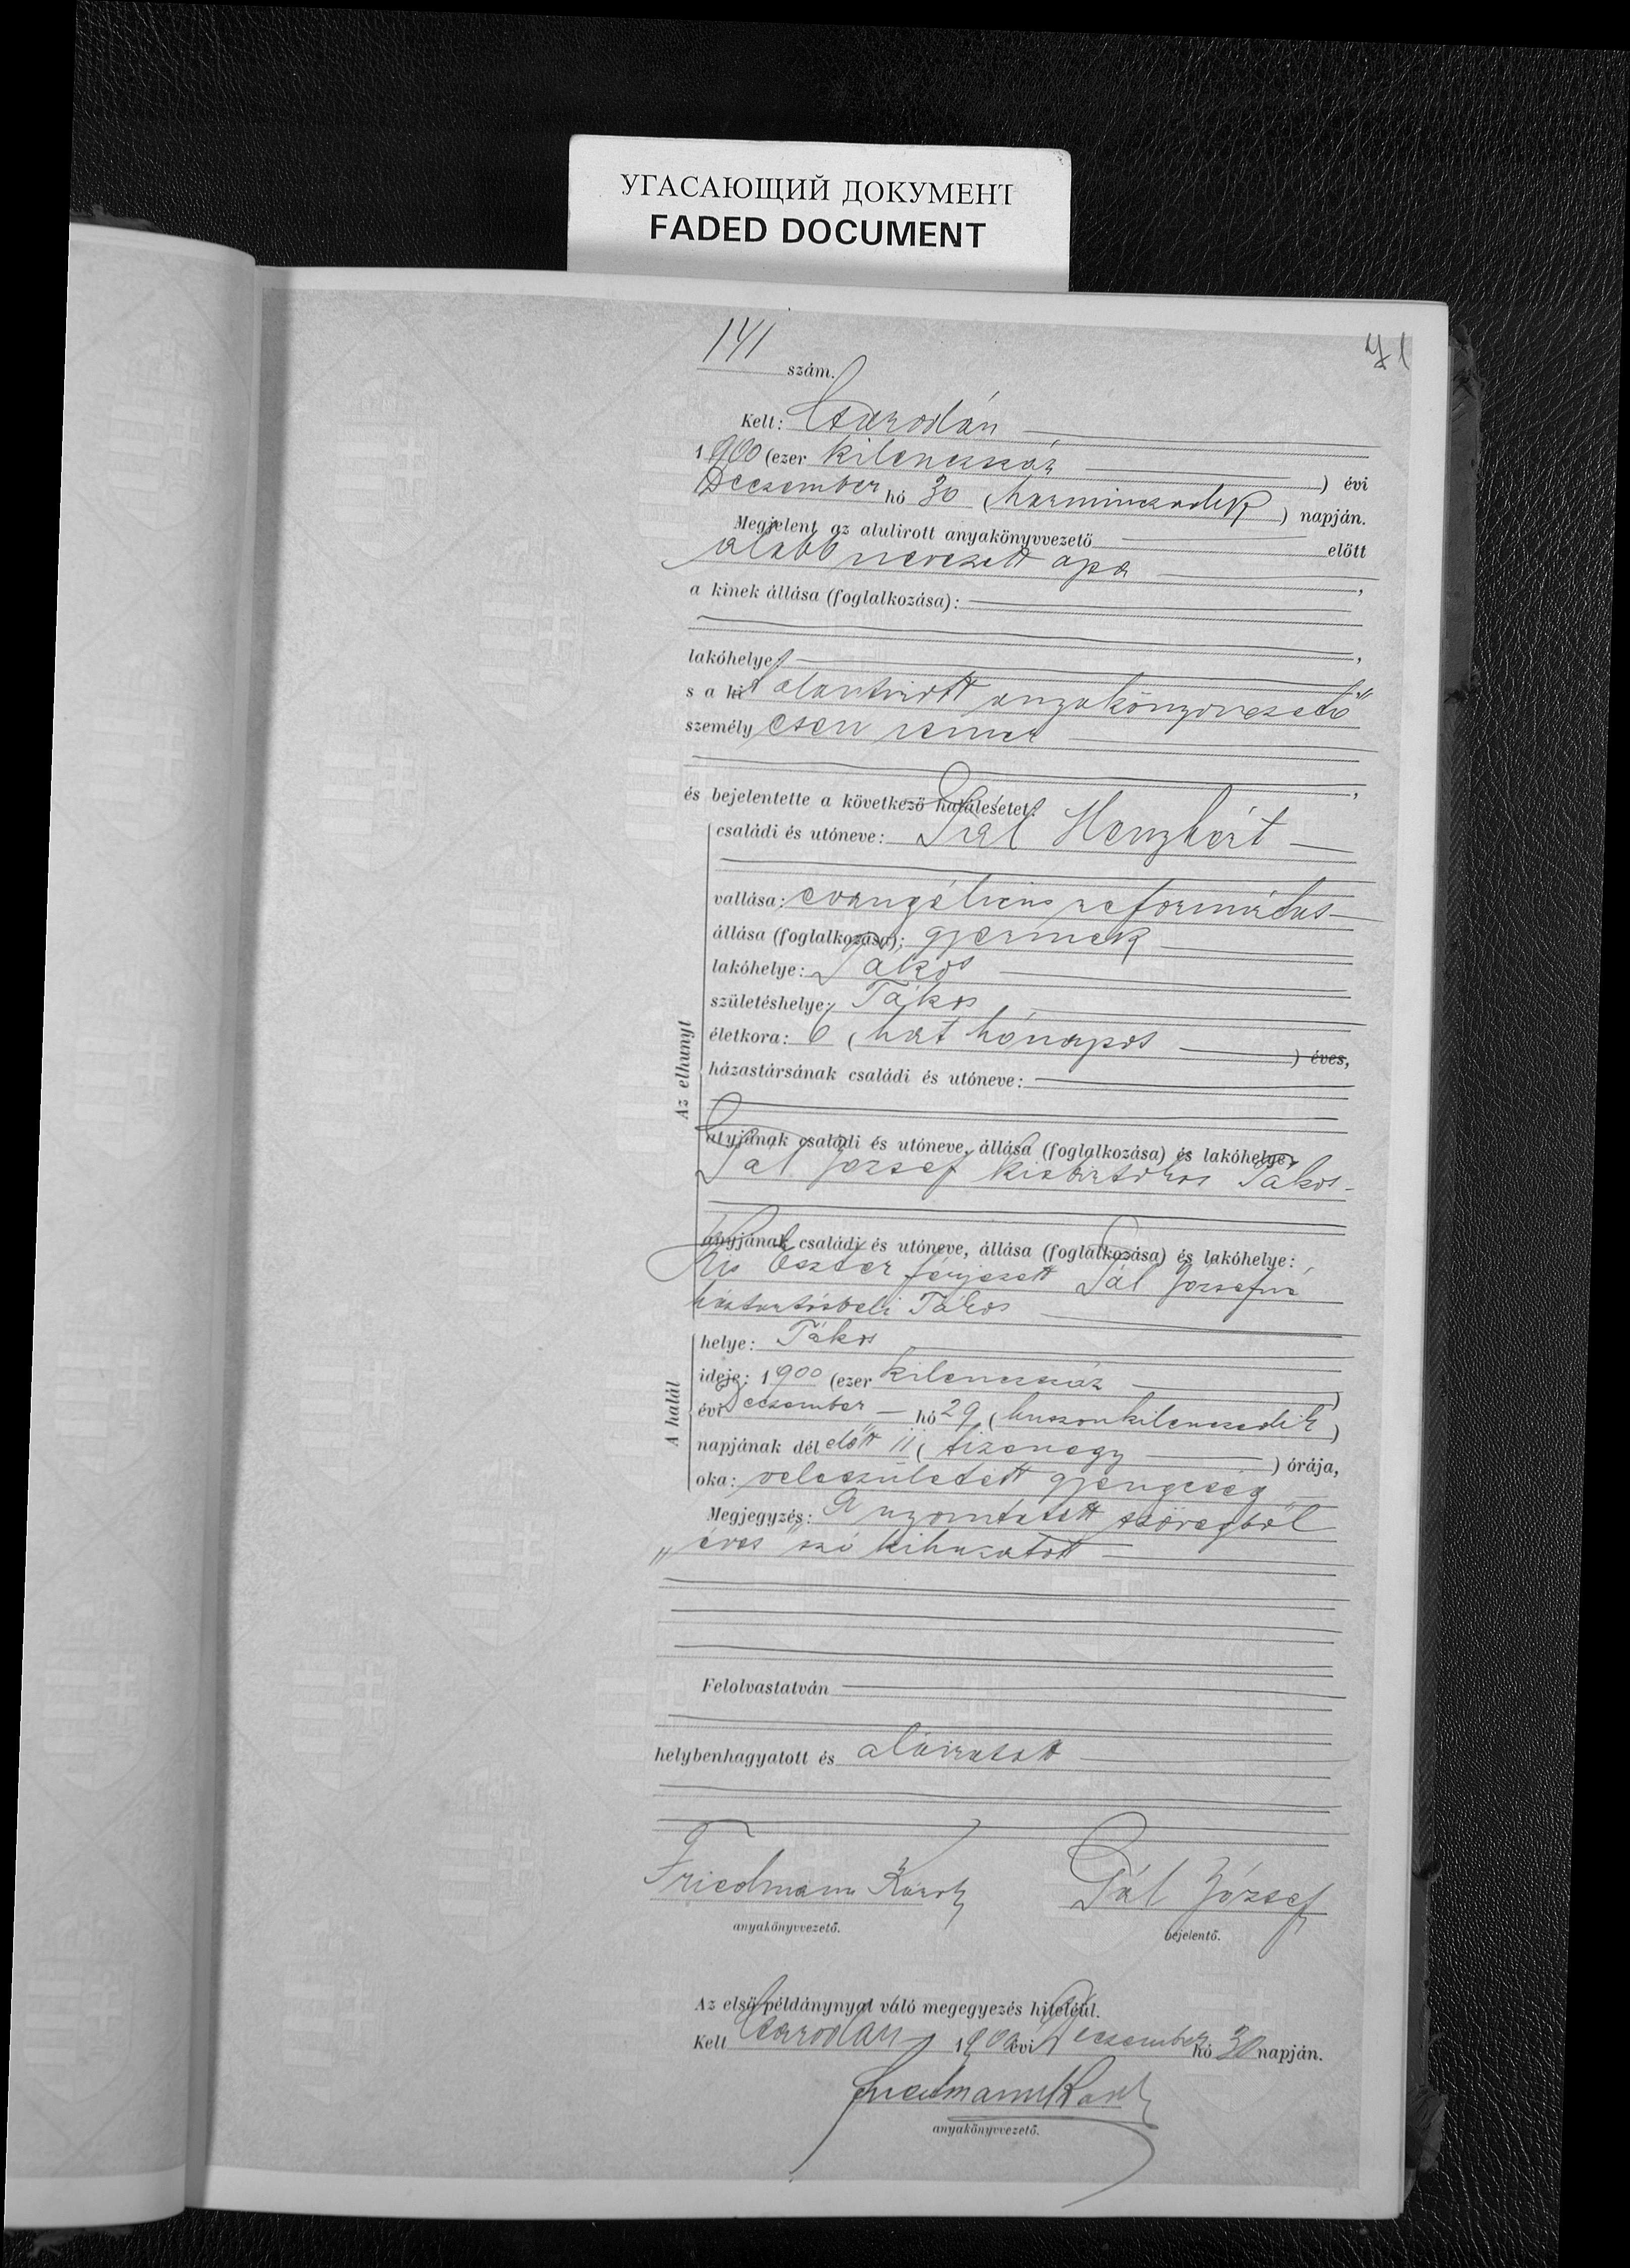 УГАСАЮЩИЙ ДОКУМЕНТ
FADED DOCUMENT
71
141 szám.
Kelt: Csarodán
1900 (ezer kilenczszáz ) évi
Deczember hó 30 (harminczadik ) napján.
Megjelent az alulirott anyakönyvvezető előtt
alább nevezett apa ,
a kinek állása (foglalkozása):
lakóhelye: ,
s a kit alantirott anyakönyvvezető
személyesen ismer
,
és bejelentette a következő halálesetet:
Az elhunyt
családi és utóneve: Pál Henyhért
vallása: evangélicus református
állása (foglalkozása): gyermek
lakóhelye: Tákos
születéshelye: Tákos
életkora: 6 (hat hónapos ) éves,
házastársának családi és utóneve:
atyjának családi és utóneve, állása (foglalkozása) és lakóhelye:
Pál József kisbirtokos Tákos
anyjának családi és utóneve, állása (foglalkozása) és lakóhelye:
Kis Eszter férjezett Pál Józsefné
háztartásbeli Tákos
A halál
helye: Tákos
ideje: 1900 (ezer kilenczszáz )
évi Deczember hó 29 (huszonkilenczedik )
napjának délelőtt 11 (tizenegy ) órája,
oka: veleszületett gyengeség
Megjegyzés: A nyomtatott szövegből
„éves” szó kihuzatott
Felolvastatván
helybenhagyatott és aláiratott
Friedmann Károly Pál József
anyakönyvvezető. bejelentő.
Az első példánynyal váló megegyezés hiteléül.
Kelt Csarodán, 1900 évi Deczember hó 30 napján.
Friedmann Károly
anyakönyvvezető.